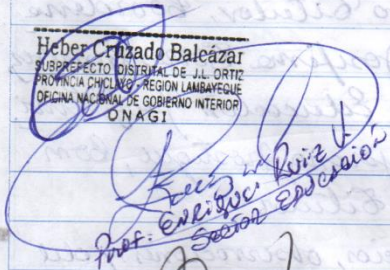 Heber Cruzado Balcázar
SUBPREFECTO DISTRITAL DE J.L. ORTIZ
PROVINCIA CHICLAYO - REGION LAMBAYEQUE
OFICINA NACIONAL DE GOBIERNO INTERIOR
ONAGI
Prof: ENRIQUE RUIZ V.
Sector EDUCACIÓN